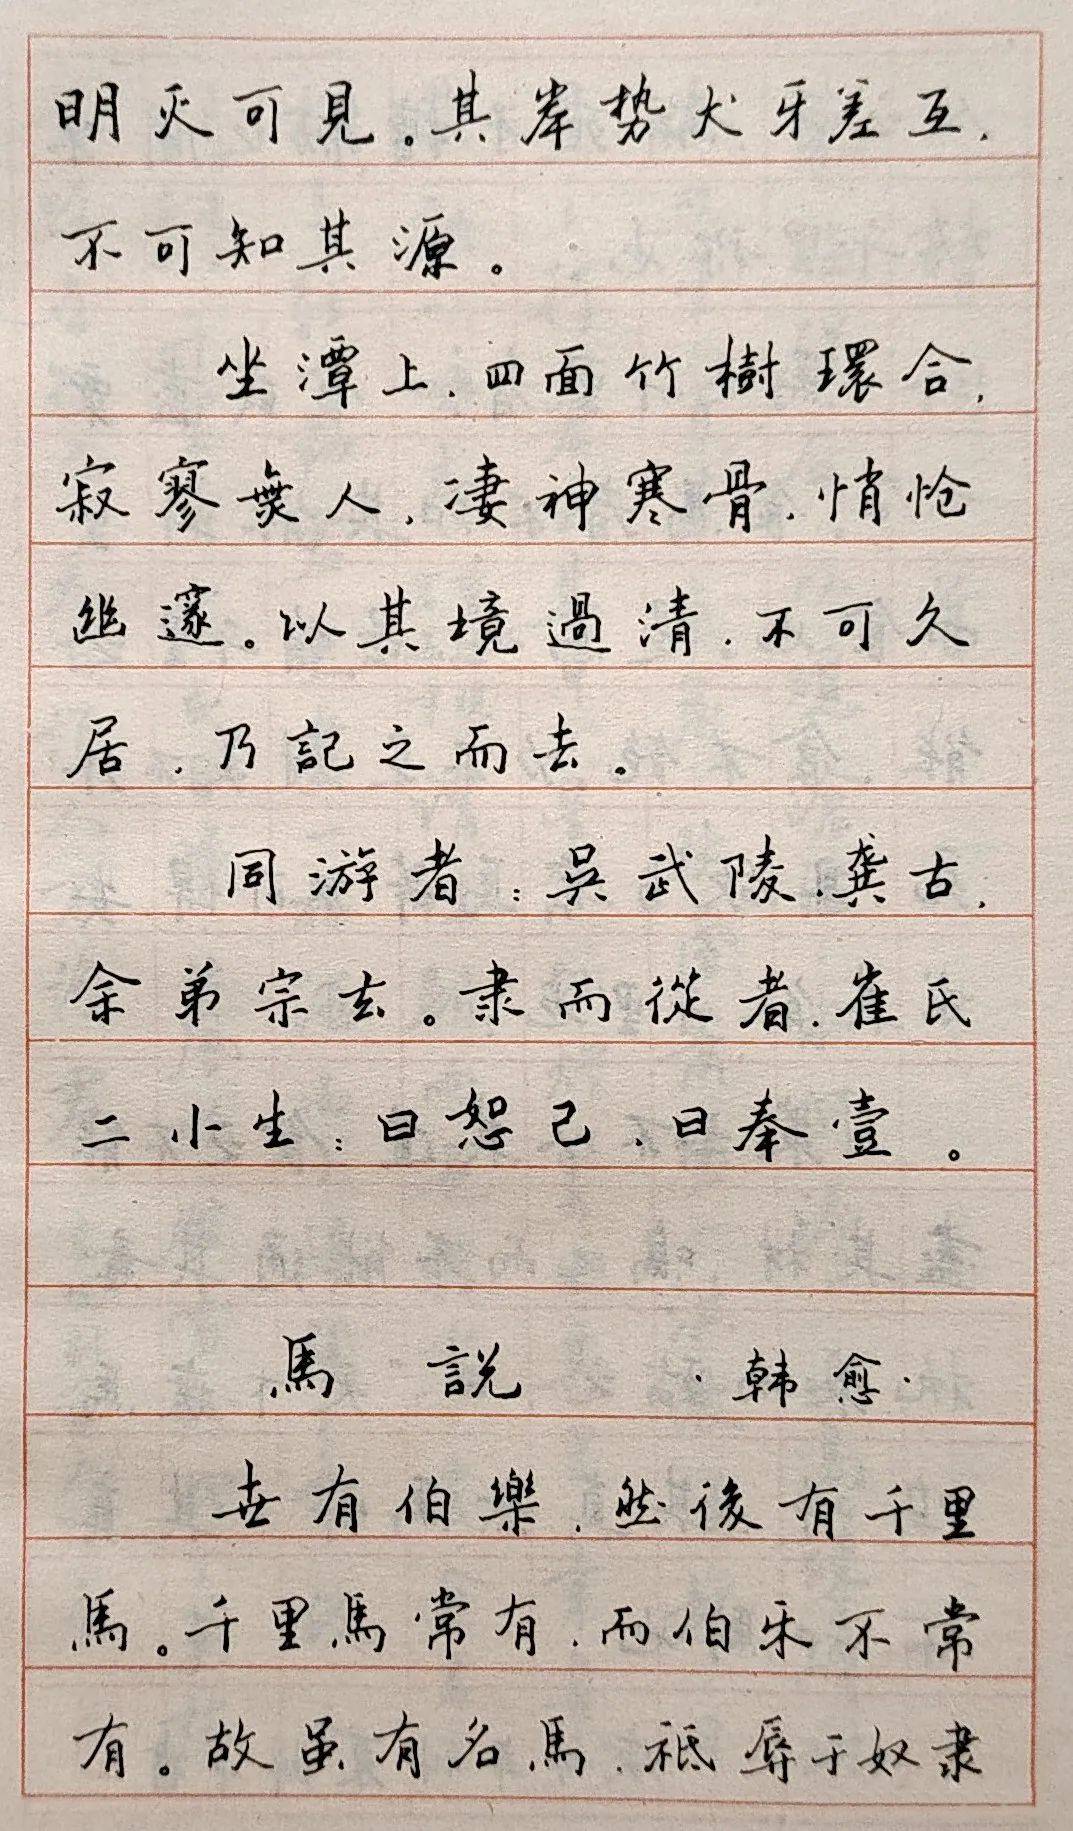 明灭可見。其岸势犬牙差互，
不可知其源。
坐潭上，四面竹樹環合，
寂寥無人，凄神寒骨，悄怆
幽邃。以其境過清，不可久
居，乃記之而去。
同游者：吳武陵，龚古，
余弟宗玄。隶而從者，崔氏
二小生：曰恕己，曰奉壹。
馬說 ·韩愈·
世有伯樂，然後有千里
馬。千里馬常有，而伯乐不常
有。故虽有名馬，祗辱于奴隶